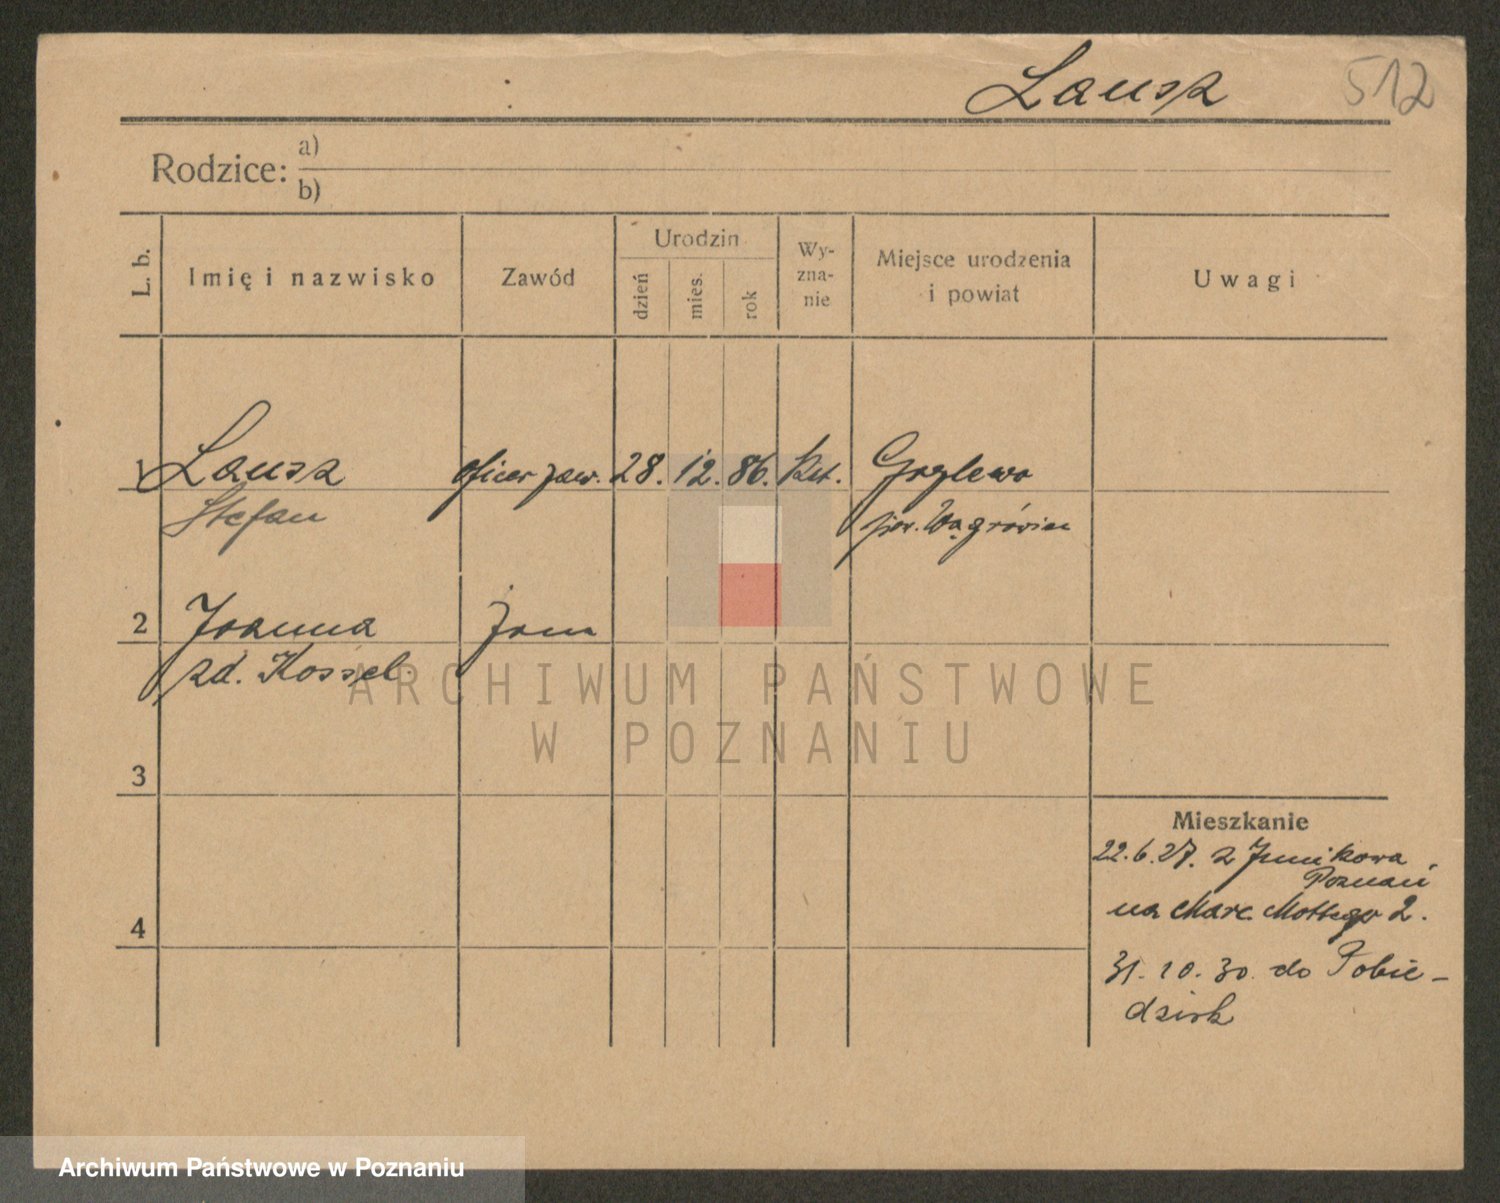 Lausz 512
Rodzice: a)
b)
L. b.
Imię i nazwisko
Zawód
Urodzin
dzień
mies.
rok
Wy-
zna-
nie
Miejsce urodzenia
i powiat
Uwagi
1 Lausz oficer zaw. 28. 12. 86. kat. Grylewo
Stefan pow. Wągrówiec
2 Joanna żona
zd. Kossel.
3
4
Mieszkanie
22.6.27. z Junikowa
Poznań
na Marc. Mottego 2.
31.10.30. do Pobie-
dzisk
ARCHIWUM PAŃSTWOWE
W POZNANIU
Archiwum Państwowe w Poznaniu